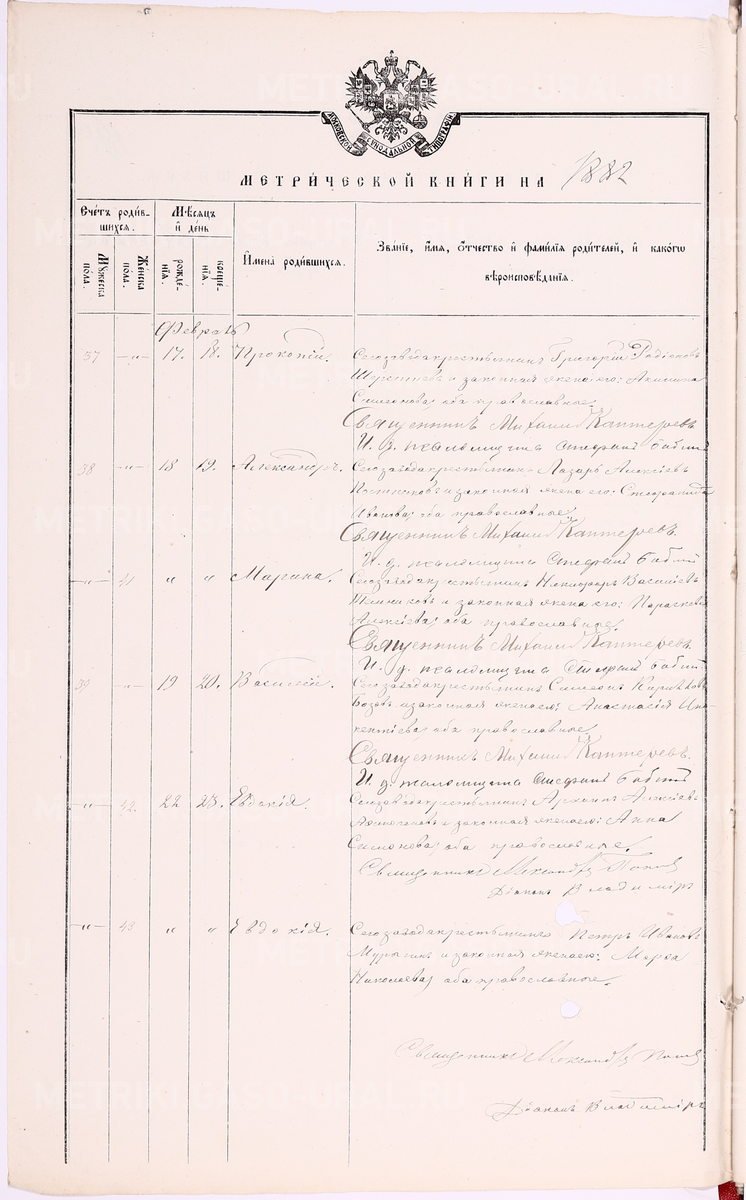 МОСКОВСКОЙ СѴНОДАЛЬНОЙ ТИПОГРАФІИ
МЕТРИ́ЧЕСКОЙ КНИ́ГИ НА 1882
Сче́тъ роди́вшихся.
Мꙋжеска по́ла.
Же́нска по́ла.
Мѣ́сяцъ и҆ де́нь
рожде́нїѧ.
креще́нїѧ.
И҆мена̀ роди́вшихсѧ.
Зва́нїе, и҆́мѧ, ѻ҆́тчество и҆ фами́лїѧ роди́телей, и҆ како́гѡ вѣроисповѣ́данїѧ.
Февраль
37 —„— 17. 18. Прокопій. Сего завода крестьянинъ Григорій Родіоновъ
и законная жена его: Акилина
Симеонова, оба православные.
Священникъ Михаилъ Каптеревъ
И. д. псаломщика Стефанъ Бабинъ
38 —„— 18 19. Александръ. Сего завода крестьянинъ Лазарь Алексѣевъ
Постниковъ и законная жена его: Стефанида
Иванова, оба православные.
Священникъ Михаилъ Каптеревъ.
И. д. псаломщика Стефанъ Бабинъ
—„— 41 „ „ Марина. Сего завода крестьянинъ Никифоръ Васильевъ
и законная жена его: Параскева
Алексѣева, оба православные.
Священникъ Михаилъ Каптеревъ.
И. д. псаломщика Стефанъ Бабинъ
39 —„— 19 20. Василій. Сего завода крестьянинъ Симеонъ
и законная жена его: Анастасія Инокентіева, оба православные.
Священникъ Михаилъ Каптеревъ.
И. д. псаломщика Стефанъ Бабинъ
—„— 42. 22 23. Евдокія. Сего завода крестьянинъ Архипъ Алексѣевъ
и законная жена его: Анна
Симонова, оба православные.
Священникъ Александръ Поповъ
Діаконъ Владиміръ
—„— 43 „ „ Евдокія. Сего завода крестьянинъ Петръ Ивановъ
и законная жена его: Марѳа
Николаева, оба православные.
Священникъ Александръ Поповъ
Діаконъ Владиміръ
METRIKI.GASO-URAL.RU